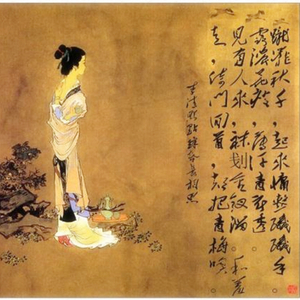 蹴罷秋千，起來慵整纖纖手。
露濃花瘦，薄汗輕衣透。
見有人來，襪剗金釵溜。和羞
走，倚門回首，却把青梅嗅。
李清照點絳唇